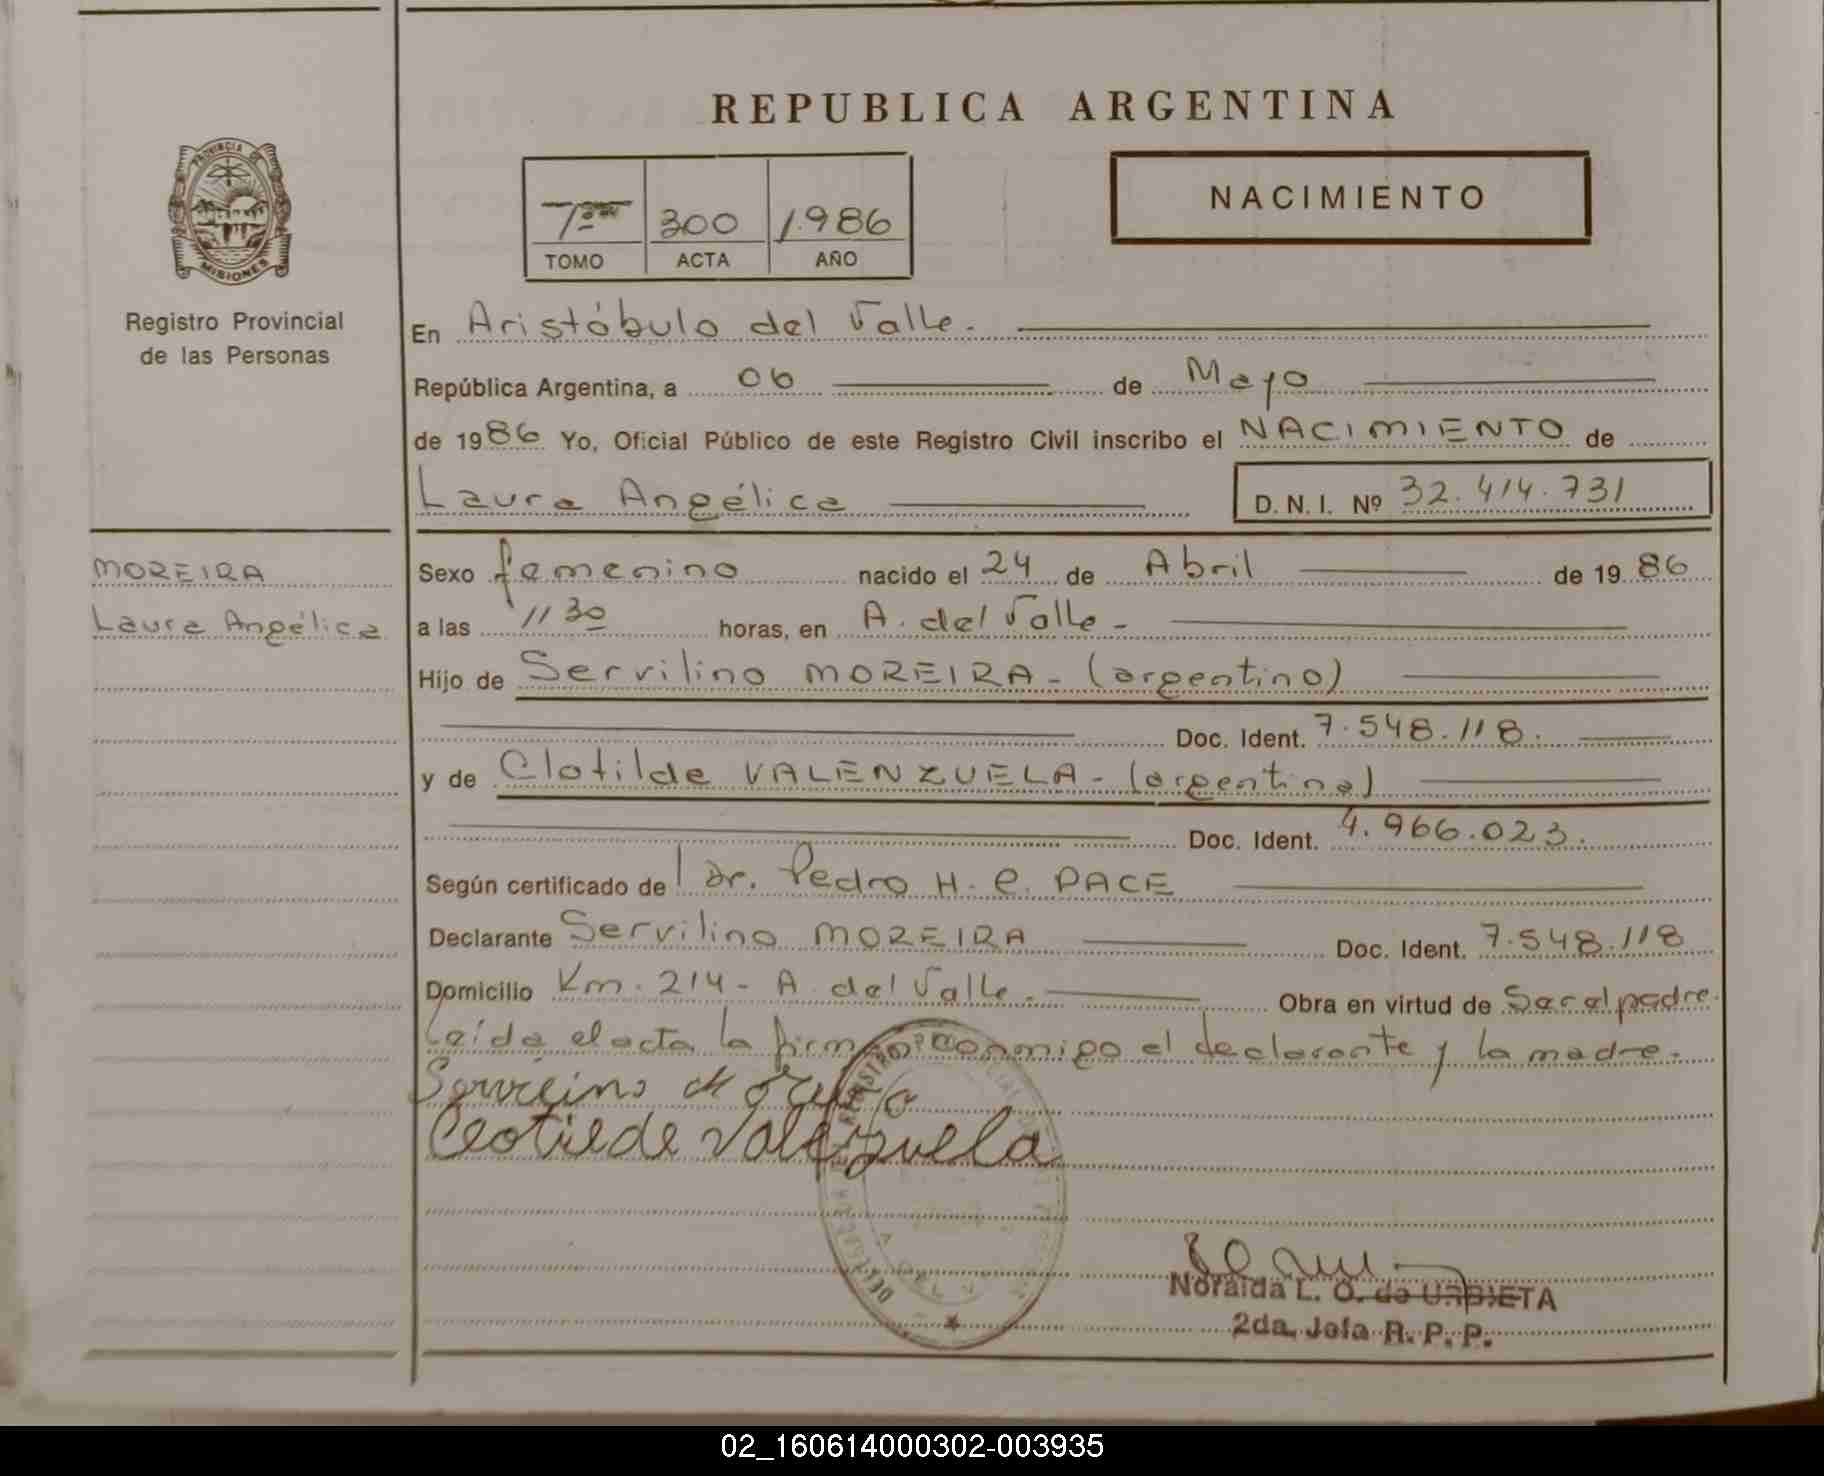 REPUBLICA ARGENTINA
PROVINCIA DE
MISIONES
Registro Provincial
de las Personas
NACIMIENTO
300 1.986
TOMO ACTA AÑO
En Aristóbulo del Valle.
República Argentina, a 06 de Mayo
de 1986 Yo, Oficial Público de este Registro Civil inscribo el NACIMIENTO de
Laura Angélica D.N.I. Nº 32.414.731
MOREIRA
Laura Angélica
Sexo femenino nacido el 24 de Abril de 1986
a las 11 30 horas, en A. del Valle -
Hijo de Servilino MOREIRA - (argentino)
Doc. Ident. 7.548.118.
y de Clotilde VALENZUELA - (argentina)
Doc. Ident. 4.966.023.
Según certificado de Dr. Pedro H. C. PACE
Declarante Servilino MOREIRA Doc. Ident. 7.548.118
Domicilio Km. 214 - A. del Valle. Obra en virtud de Ser el padre.
Leída el acta la firman conmigo el declarante y la madre.
Clotilde Valenzuela
Noraida L. O. de URBIETA
2da. Jefa R. P. P.
02_160614000302-003935